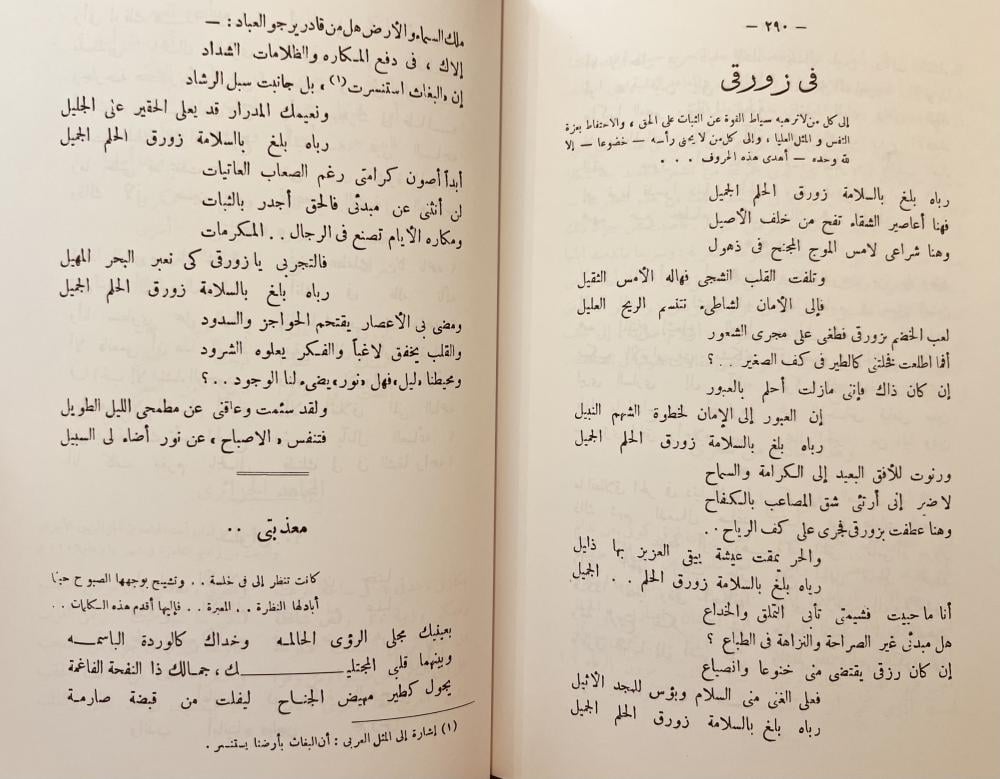 - ٢٩٠ -
فى زورقى
إلى كل من لا ترهبه سياط القوة عن الثبات على الحق ، والاحتفاظ بعزة
النفس و المثل العليا ، وإلى كل من لا يحنى رأسه - خضوعا - إلا
لله وحده - أهدى هذه الحروف . . .
رباه بلغ بالسلامة زورق الحلم الجميل
فهنا أعاصير الشقاء تفح من خلف الأصيل
وهنا شراعى لامس الموج المجنح فى ذهول
وتلفت القلب الشجى فهاله الأمس الثقيل
فإلى الأمان لشاطىء تتنسم الريح العليل
لعب الخضم بزورقى فطغى على مجرى الشعور
أفما اطلعت فخلتنى كالطير فى كف الصغير . . ؟
إن كان ذاك فإننى مازلت أحلم بالعبور
إن العبور إلى الإمان لخطوة الشهم النبيل
رباه بلغ بالسلامة زورق الحلم الجميل
ورنوت للأفق البعيد إلى الكرامة والسماح
لا ضير إنى أرتئى شق المصاعب بالكفاح
وهنا عطفت بزورقى فجرى على كف الرياح . .
والحر يمقت عيشة يبقى العزيز بها ذليل
رباه بلغ بالسلامة زورق الحلم . . الجميل
أنا ما حييت فشيمتى تأبى التملق والخداع
هل مبدئى غير الصراحة والنزاهة فى الطباع ؟
إن كان رزقى يقتضى منى خنوعا وانصياع
فعلى الغنى منى السلام وبؤس للمجد الأثيل
رباه بلغ بالسلامة زورق الحلم الجميل
ملك السماء والأرض هل من قادر يرجو العباد : -
إلاك ، فى دفع المكاره والظلامات الشداد
إن «البغاث استنسرت (١) ، بل جانبت سبل الرشاد
ونعيمك المدرار قد يعلى الحقير على الجليل
رباه بلغ بالسلامة زورق الحلم الجميل
أبداً أصون كرامتى رغم الصعاب العاتيات
لن أنثنى عن مبدئى فالحق أجدر بالثبات
ومكاره الأيام تصنع فى الرجال . . المكرمات
فالتجربى يا زورقى كى نعبر البحر المهيل
رباه بلغ بالسلامة زورق الحلم الجميل
ومضى بى الأعصار يقتحم الحواجز والسدود
والقلب يخفق لاغباً والفكر يعلوه الشرود
ومحيطنا «ليل» فهل «نور» يضىء لنا الوجود . . ؟
ولقد سئمت وعاقنى عن مطمحى الليل الطويل
فتنفس «الاصباح» عن نور أضاء لى السبيل
معذبتى . .
كانت تنظر إلى فى خلسة . . وتشيح بوجهها الصبوح حينا
أبادلها النظرة . . المعبرة . . فإليها أقدم هذه الكلمات . .
بعينيك مجلى الرؤى الحالمه وخداك كالوردة الباسمه
وبينهما قلبى المجتليك ، جمالك ذا النفحة الفاغمة
يجول كطير مهيض الجناح ليفلت من قبضة صارمة
(١) إشارة إلى المثل العربى : أن البغاث بأرضنا يستنسر .